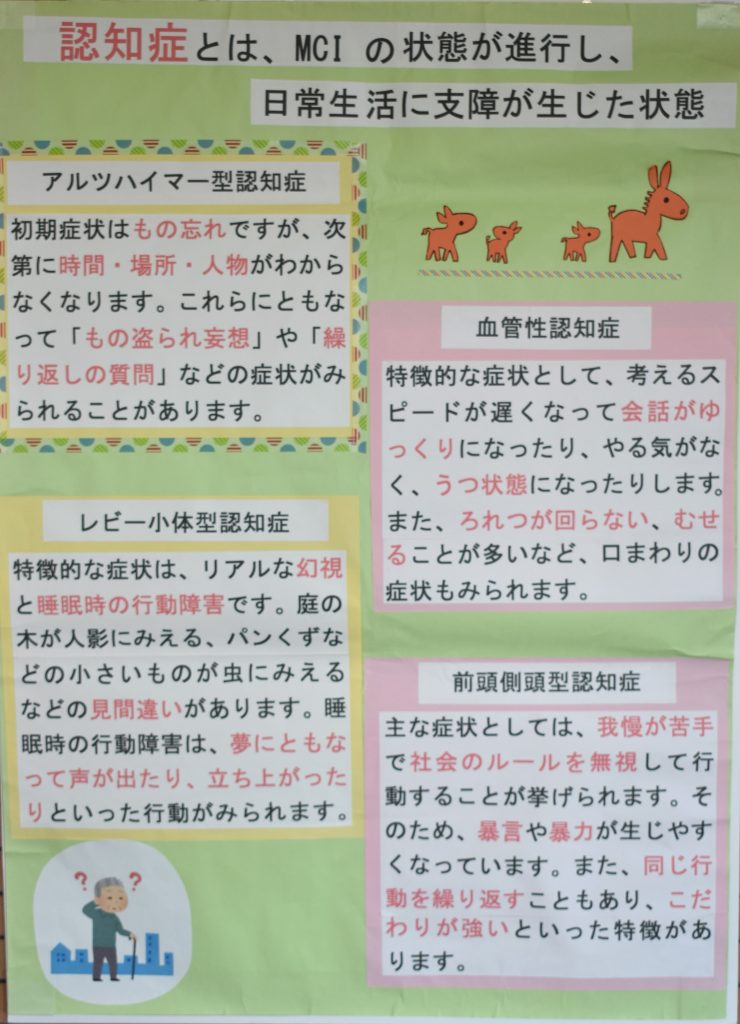 認知症とは、MCI の状態が進行し、
日常生活に支障が生じた状態
アルツハイマー型認知症
初期症状はもの忘れですが、次
第に時間・場所・人物がわから
なくなります。これらにともな
って「もの盗られ妄想」や「繰
り返しの質問」などの症状がみ
られることがあります。
血管性認知症
特徴的な症状として、考えるス
ピードが遅くなって会話がゆ
っくりになったり、やる気がな
く、うつ状態になったりします。
また、ろれつが回らない、むせ
ることが多いなど、口まわりの
症状もみられます。
レビー小体型認知症
特徴的な症状は、リアルな幻視
と睡眠時の行動障害です。庭の
木が人影にみえる、パンくずな
どの小さいものが虫にみえる
などの見間違いがあります。睡
眠時の行動障害は、夢にともな
って声が出たり、立ち上がった
りといった行動がみられます。
前頭側頭型認知症
主な症状としては、我慢が苦手
で社会のルールを無視して行
動することが挙げられます。そ
のため、暴言や暴力が生じやす
くなっています。また、同じ行
動を繰り返すこともあり、こだ
わりが強いといった特徴があ
ります。
? ?